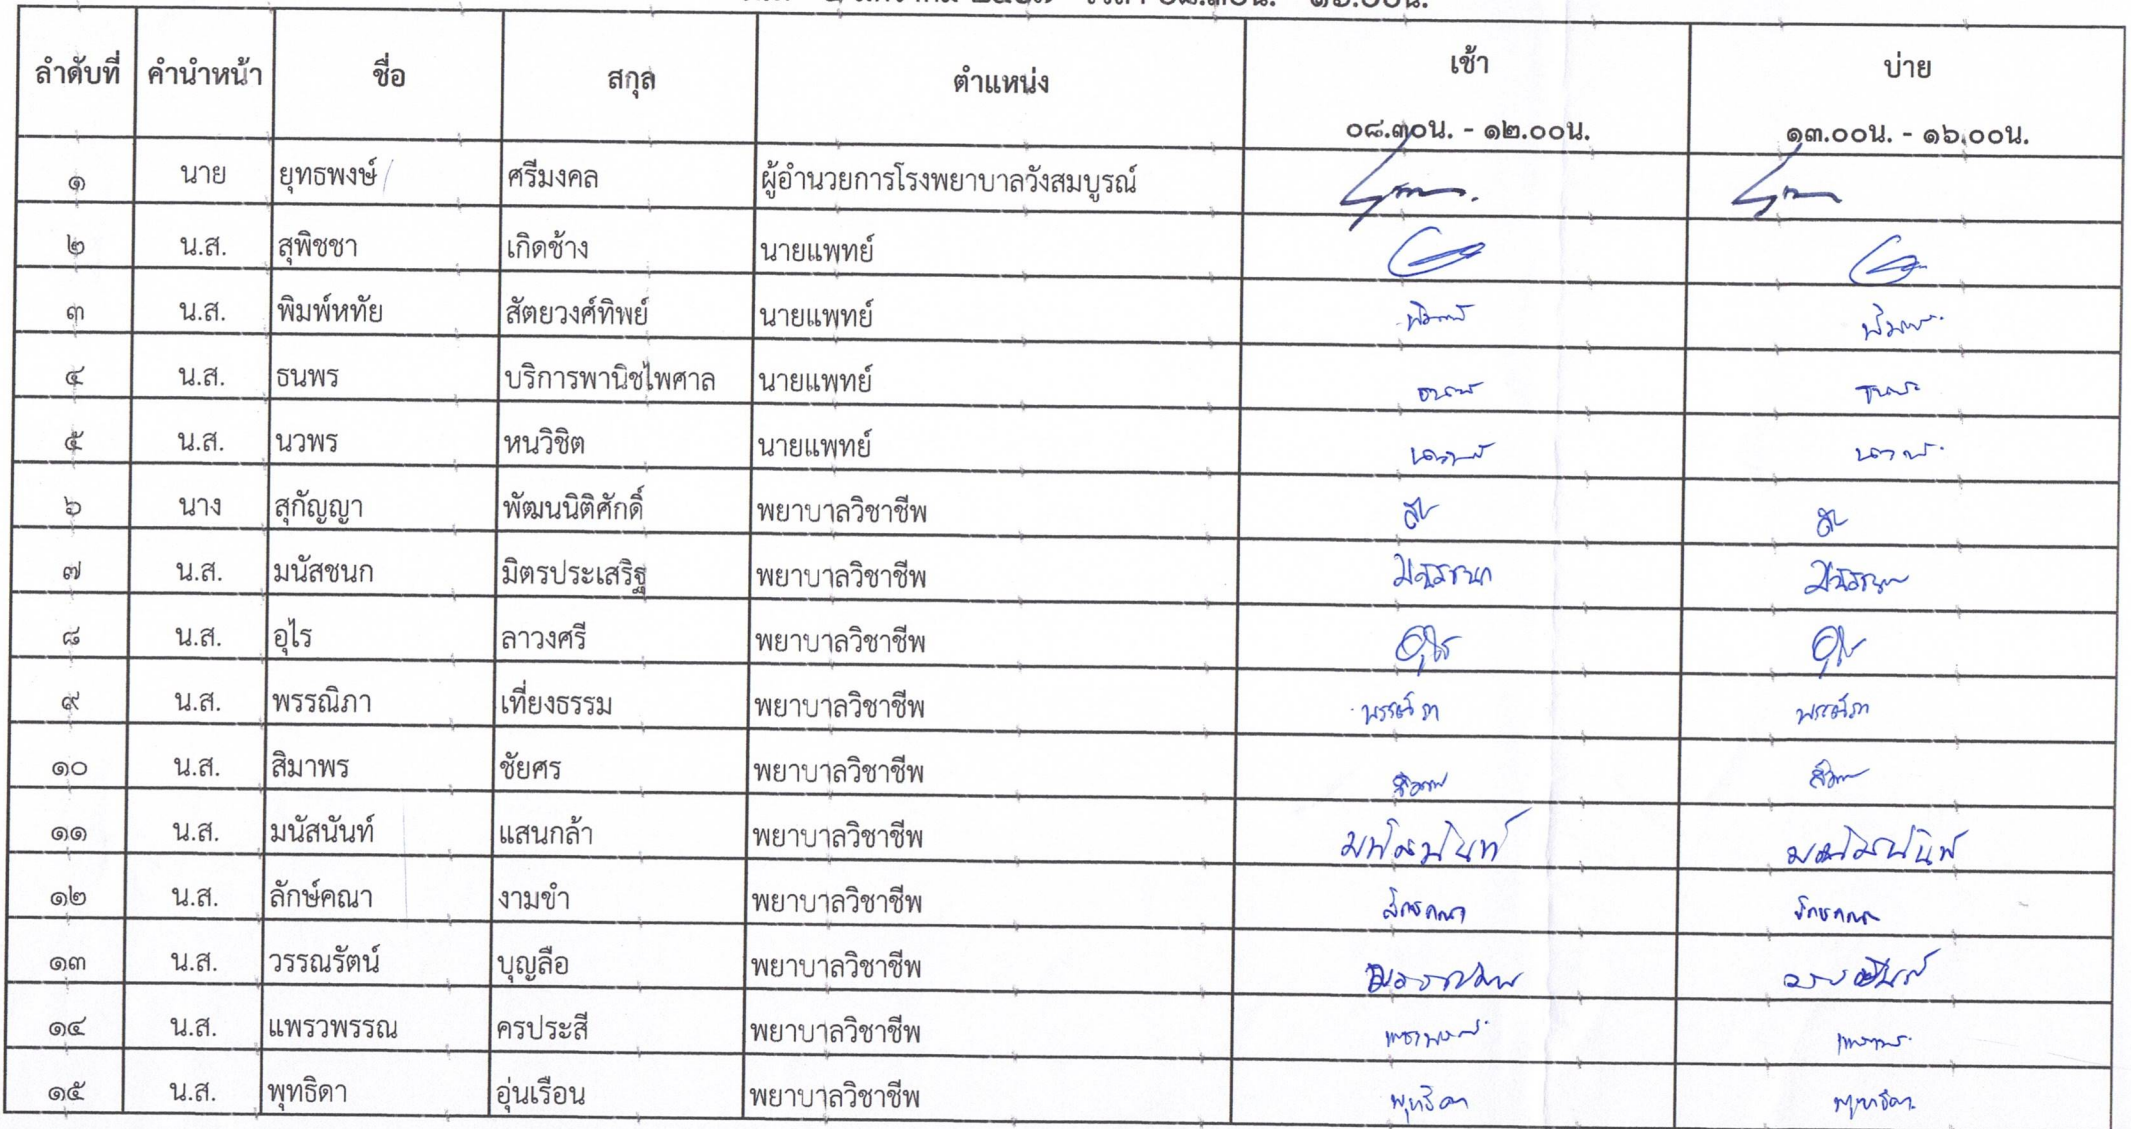 ลำดับที่ คำนำหน้า ชื่อ สกุล ตำแหน่ง เช้า บ่าย
๐๘.๓๐น. - ๑๒.๐๐น. ๑๓.๐๐น. - ๑๖.๐๐น.
๑ นาย ยุทธพงษ์ ศรีมงคล ผู้อำนวยการโรงพยาบาลวังสมบูรณ์
๒ น.ส. สุพิชชา เกิดช้าง นายแพทย์
๓ น.ส. พิมพ์หทัย สัตยวงศ์ทิพย์ นายแพทย์
๔ น.ส. ธนพร บริการพานิชไพศาล นายแพทย์
๕ น.ส. นวพร หนวิชิต นายแพทย์
๖ นาง สุกัญญา พัฒนนิติศักดิ์ พยาบาลวิชาชีพ
๗ น.ส. มนัสชนก มิตรประเสริฐ พยาบาลวิชาชีพ มนัสชนก มนัสชนก
๘ น.ส. อุไร ลาวงศรี พยาบาลวิชาชีพ อุไร อุไร
๙ น.ส. พรรณิภา เที่ยงธรรม พยาบาลวิชาชีพ พรรณิภา พรรณิภา
๑๐ น.ส. สิมาพร ชัยศร พยาบาลวิชาชีพ
๑๑ น.ส. มนัสนันท์ แสนกล้า พยาบาลวิชาชีพ มนัสนันท์ มนัสนันท์
๑๒ น.ส. ลักษ์คณา งามขำ พยาบาลวิชาชีพ ลักษ์คณา ลักษ์คณา
๑๓ น.ส. วรรณรัตน์ บุญลือ พยาบาลวิชาชีพ
๑๔ น.ส. แพรวพรรณ ครประสี พยาบาลวิชาชีพ
๑๕ น.ส. พุทธิดา อุ่นเรือน พยาบาลวิชาชีพ พุทธิดา พุทธิดา